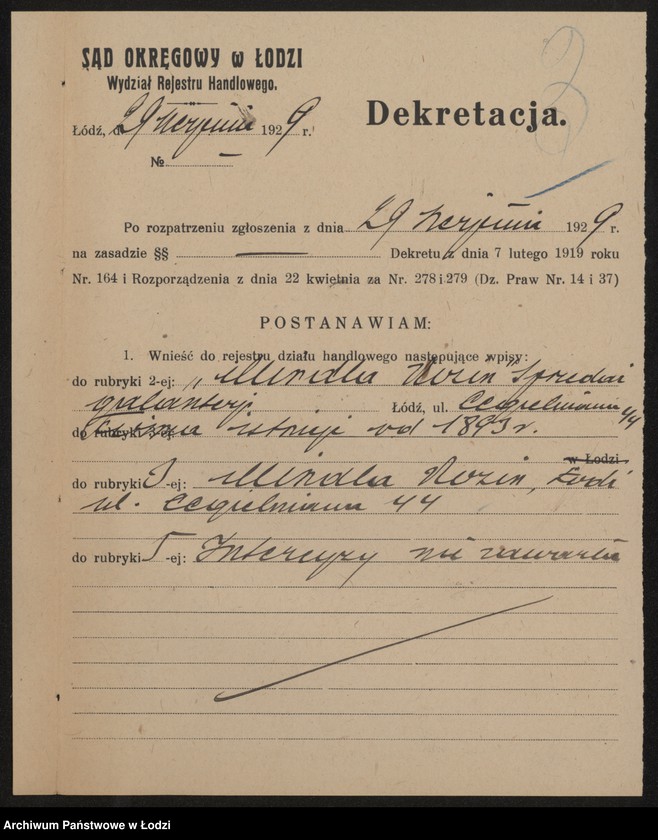 SĄD OKRĘGOWY w ŁODZI
Wydział Rejestru Handlowego.
Łódź, d. 29 sierpnia 1929 r.
№ —
3
Dekretacja.
Po rozpatrzeniu zgłoszenia z dnia 29 sierpnia 1929 r.
na zasadzie §§ — Dekretu z dnia 7 lutego 1919 roku
Nr. 164 i Rozporządzenia z dnia 22 kwietnia za Nr. 278 i 279 (Dz. Praw Nr. 14 i 37)
POSTANAWIAM:
1. Wnieść do rejestru działu handlowego następujące wpisy:
do rubryki 2-ej: „Mindla Rozin" Sprzedaż
galanterji Łódź, ul. Cegielniana 44
do rubryki 3-ej: Firma istnieje od 1893 r.
w Łodzi
do rubryki 3-ej: Mindla Rozin, Łódź
ul. Cegielniana 44
do rubryki 5-ej: Intercyzy nie zawarła
Archiwum Państwowe w Łodzi